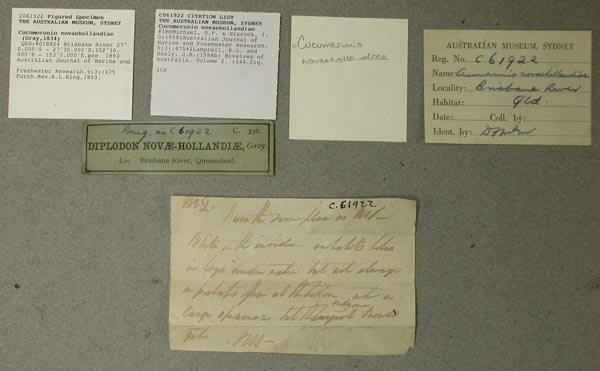 C061922 Figured Specimen
THE AUSTRALIAN MUSEUM, SYDNEY
Cucumerunio novaehollandiae
(Gray, 1834)
QLD:#018824 Brisbane River 27°
0.000'S - 27°30.000'S, 152°30.
000'E - 153°0.000'E, pre 1893
Australian Journal of Marine and
Freshwater Research. 9(3):475
Purch.Rev.R.L.King, 1893;
C061922 CITATION LIST
THE AUSTRALIAN MUSEUM, SYDNEY
Cucumerunio novaehollandiae
#(McMichael, D.F. & Hiscock, I.
D)(1958)Australian Journal of
Marine and Freshwater Research.
9(3):475#2Lamprell, K.L. and
Healy, J.M.:(1998), Bivalves of
Australia. Volume 2. :144.fig.
358
=Cucumerunio
novaehollandiae
AUSTRALIAN MUSEUM, SYDNEY
Reg. No. C 61922
Name Cucumerunio novaehollandiae
Locality: Brisbane River
Habitat: Qld.
Date: Coll. by:
Ident. by:
Rereg. as C 61922 C. 350.
DIPLODON NOVÆ-HOLLANDIÆ, Gray.
Loc. Brisbane River, Queensland.
C.61922
No 2.
from the same place as No 1 -
White in the inside - inhabits holes
in logs under water but not always
a
large specimen but the